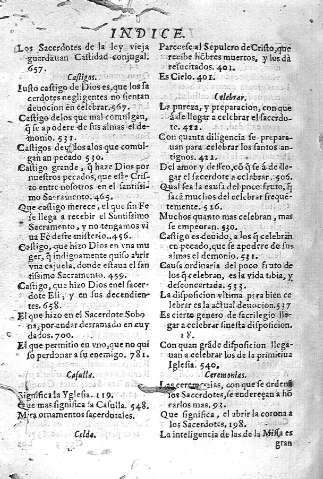 INDICE.
Los Sacerdotes de la ley vieja
guardauan Castidad conjugal.
657.
Castigos.
Iusto castigo de Dios es, que los sa
cerdotes negligentes no sientan
deuocion en celebrar. 569.
Castigo de los que mal comulgan,
q̃ se apodere de sus almas el de-
monio. 531.
Castigos de los que comul
gan en pecado 530.
Castigo grande, q̃ haze Dios por
nuestros pecados, que este Cris-
to entre nosotros en el santissi-
mo Sacramento. 465.
Que castigo merece, el que sin Fè
se llega a recebir el Santissimo
Sacramento, y no tengamos vi
ua Fè deste misterio. 456.
Castigo, que hizo Dios en vna mu
ger, q̃ indignamente quiso abrir
vna cajuela, donde estaua el san
tissimo Sacramento. 459.
Castigo, que hizo Dios en el sacer-
dote Eli, y en sus decendien-
tes. 658.
El que hizo en el Sacerdote Sobo-
na, por andar desramado en cuy
dados. 700.
El que permitio en vno, que no qui
so perdonar a su enemigo. 781.
Casulla.
Significa la Yglesia. 119.
Que mas significa la Casulla. 548.
Mira ornamentos sacerdotales.
Celda.
Parecese al Sepulcro de Cristo, que
recibe hõbres muertos, y los dà
resucitados. 401.
Es Cielo. 401.
Celebrar.
La pureza, y preparacion, con que
se à de llegar a celebrar el sacerdo-
te. 422.
Con quanta diligencia se prepara-
uan para celebrar los santos an-
tiguos. 422.
Del amor y desseo, cõ q̃ se à de lle-
gar el sacerdote a celebrar. 506.
Qual sea la causa del poco fruto, q̃
sacã muchos del celebrar freque-
temente. 516.
Muchos quanto mas celebran, mas
se empeoran. 530.
Castigo es deuido, a los q̃ celebran
en pecado, que se apodere de sus
almas el demonio. 531.
Causa ordinaria del poco fruto de
los q̃ celebran, es la vida tibia, y
desconcertada. 535.
La disposicion vltima para bien ce
lebrar es la actual deuocion. 537
Es cierto genero de sacrilegio lle-
gar a celebrar sin esta disposicion.
Con quan grãde disposicion llega-
uan a celebrar los de la primitiua
Iglesia. 540.
Ceremonias.
Las ceremonias, con que se ordenã
los Sacerdotes, se endereçan a hõ
rarlos mas. 92.
Que significa, el abrir la corona a
los Sacerdotes, 198.
La inteligencia de las de la Missa es
gran